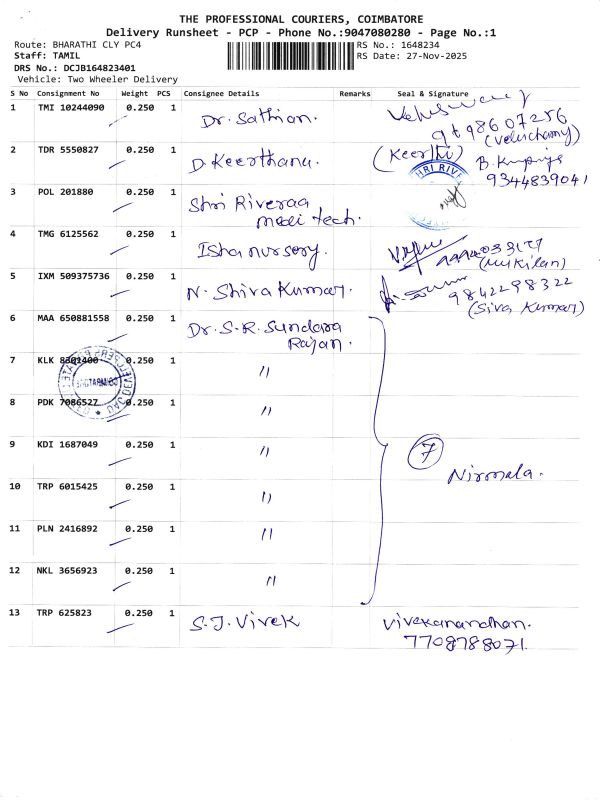 THE PROFESSIONAL COURIERS, COIMBATORE
Delivery Runsheet - PCP - Phone No.:9047080280 - Page No.:1
Route: BHARATHI CLY PC4 RS No.: 1648234
Staff: TAMIL RS Date: 27-Nov-2025
DRS No.: DCJB164823401
Vehicle: Two Wheeler Delivery
S No Consignment No Weight PCS Consignee Details Remarks Seal & Signature
1 TMI 10244090 0.250 1 Dr. Sathian.
98607256
(Veluchamy)
2 TDR 5550827 0.250 1 D. Keerthana. (Keerthi)
9344839041
3 POL 201880 0.250 1 Shri Riveraa
medi tech.
SHRI RIVE
4 TMG 6125562 0.250 1 Isha nursory.
(Mukilan)
5 IXM 509375736 0.250 1 N. Shiva Kumar. 9842298322
(Siva Kumar)
6 MAA 650881558 0.250 1 Dr. S.R. Sundara
Rajan.
7 KLK 8301400 0.250 1 "
8 PDK 7086527 0.250 1 "
9 KDI 1687049 0.250 1 "
7
Nirmala.
10 TRP 6015425 0.250 1 "
11 PLN 2416892 0.250 1 "
12 NKL 3656923 0.250 1 "
13 TRP 625823 0.250 1 S.J. Vivek Vivekanandhan.
7708788071.